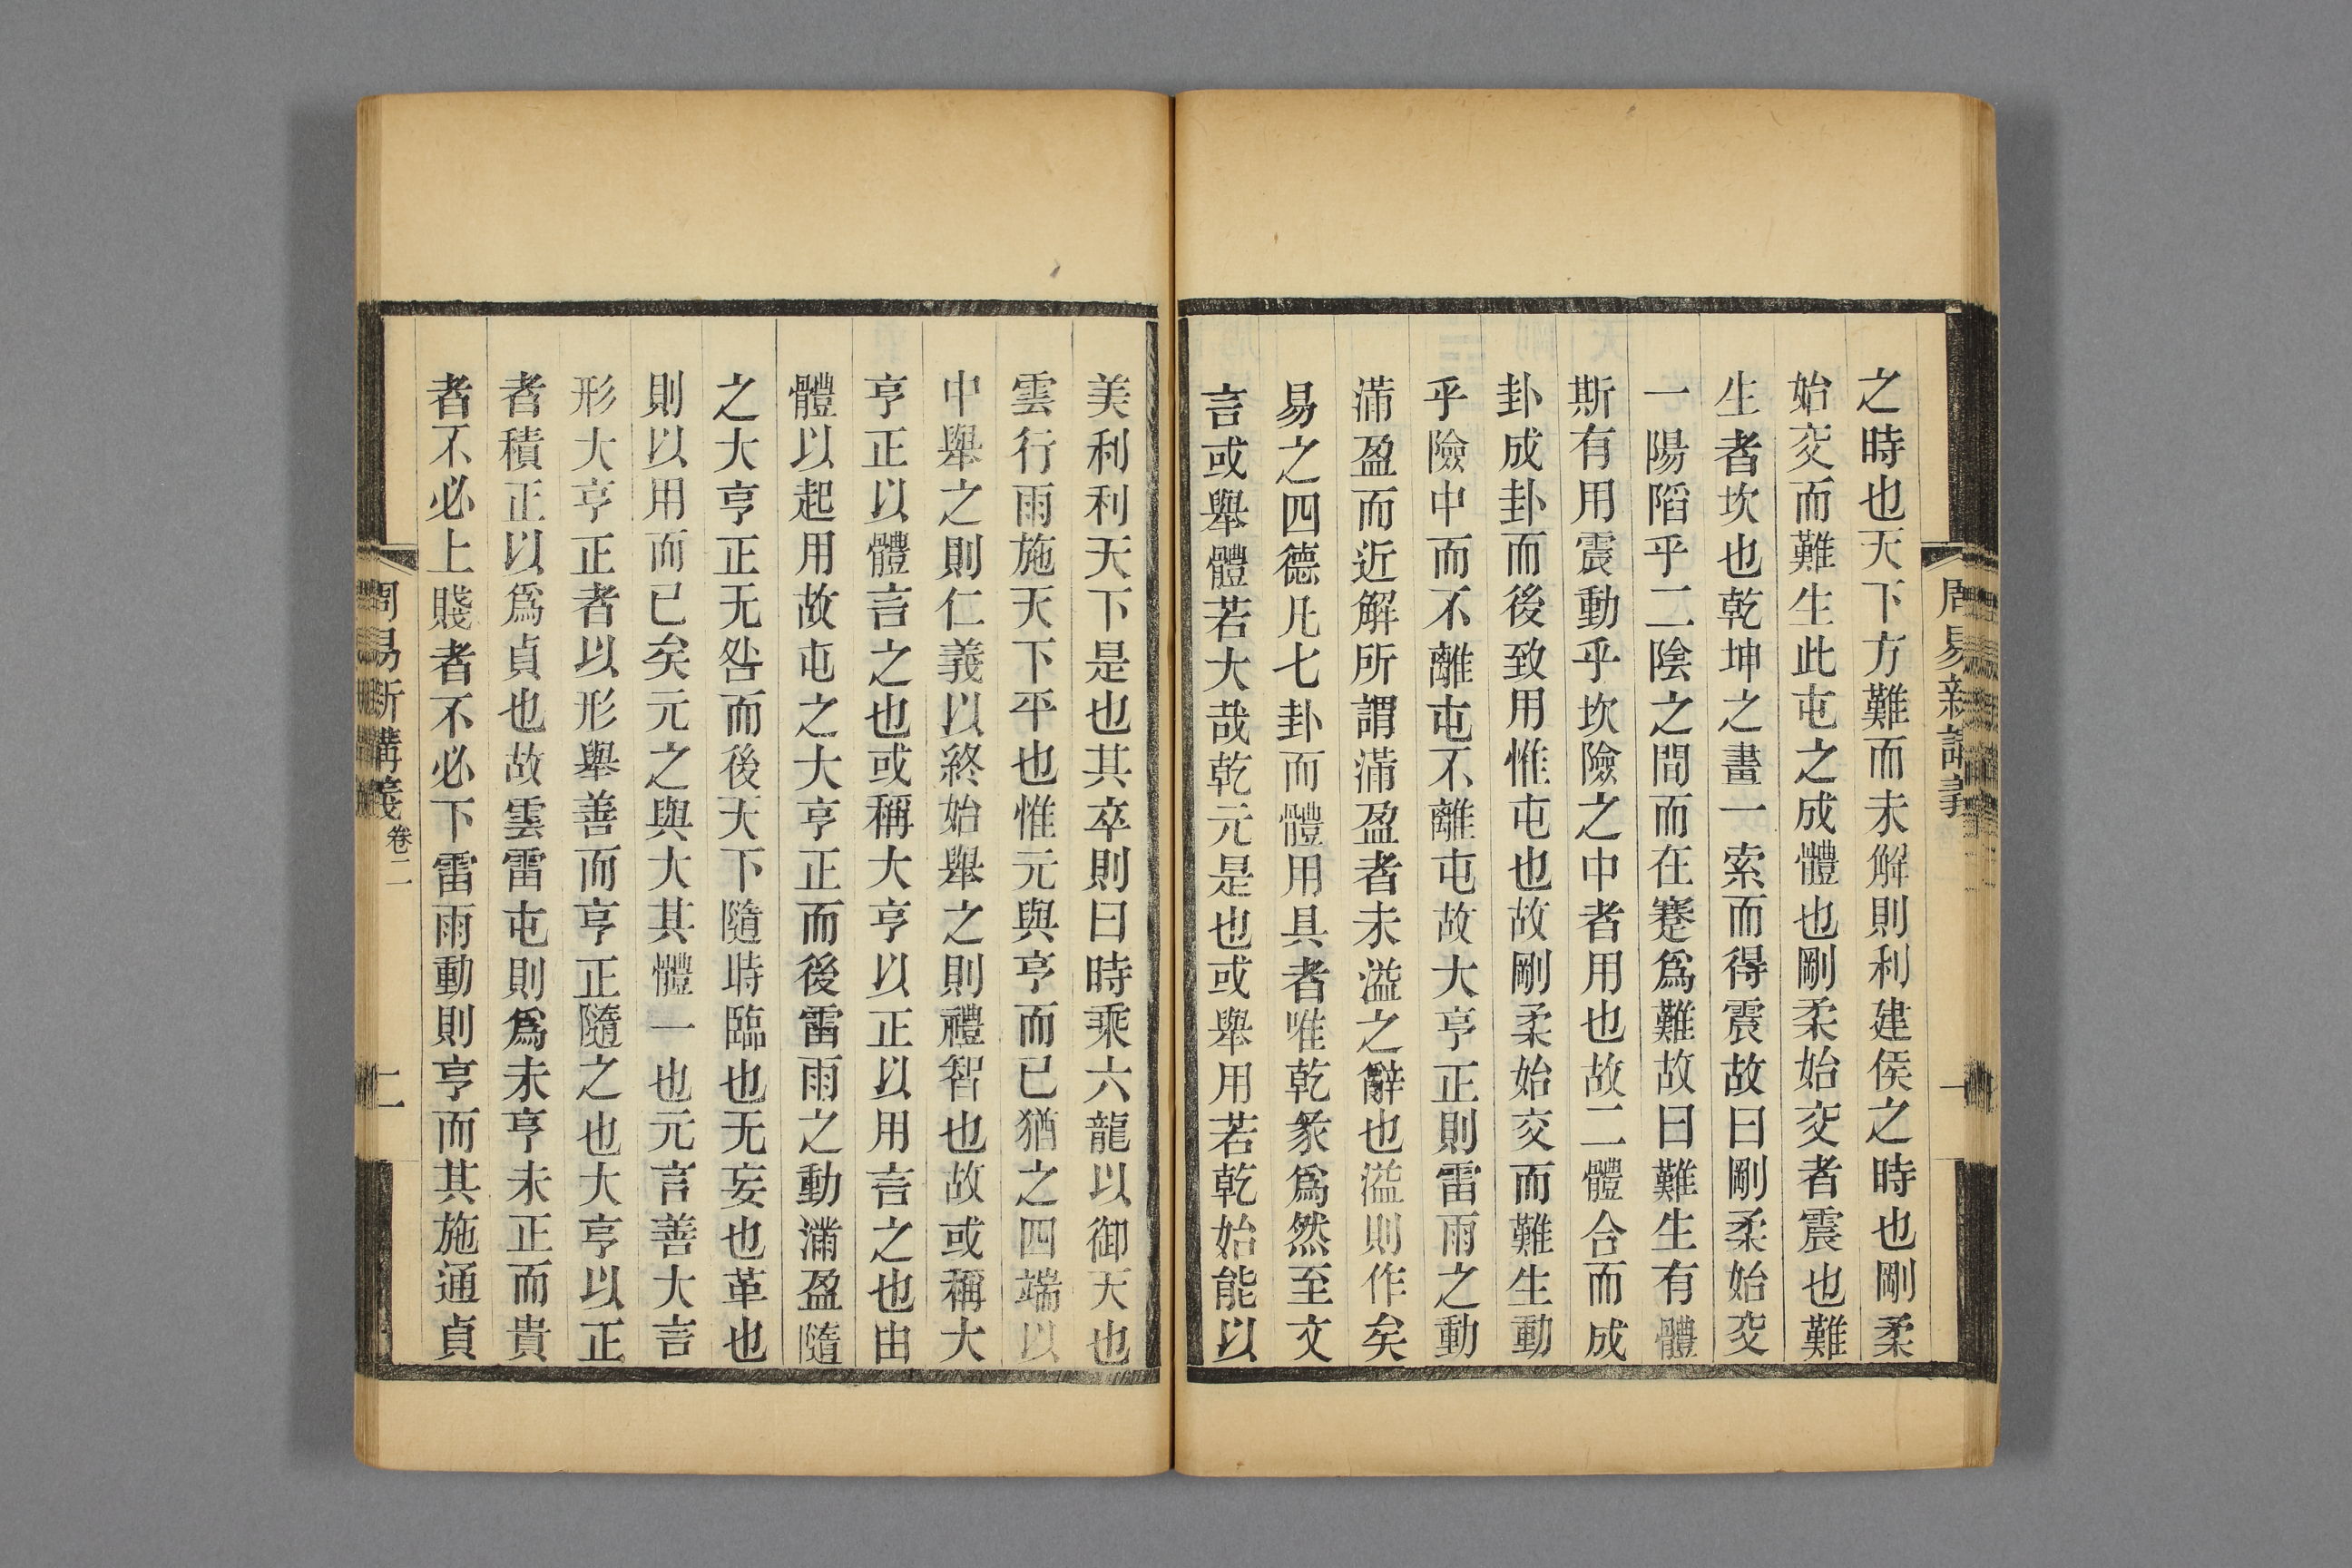 之時也天下方難而未解則利建侯之時也剛柔
始交而難生此屯之成體也剛柔始交者震也難
生者坎也乾坤之畫一索而得震故曰剛柔始交
一陽陷乎二陰之間而在蹇爲難故曰難生有體
斯有用震動乎坎險之中者用也故二體合而成
卦成卦而後致用惟屯也故剛柔始交而難生動
乎險中而不離屯不離屯故大亨正則雷雨之動
滿盈而近解所謂滿盈者未溢之辭也溢則作矣
易之四德凡七卦而體用具者唯乾彖爲然至文
言或舉體若大哉乾元是也或舉用若乾始能以
周易新講義
一
美利利天下是也其卒則曰時乘六龍以御天也
雲行雨施天下平也惟元與亨而已猶之四端以
中舉之則仁義以終始舉之則禮智也故或稱大
亨正以體言之也或稱大亨以正以用言之也由
體以起用故屯之大亨正而後雷雨之動滿盈隨
之大亨正无咎而後天下隨時臨也无妄也革也
則以用而已矣元之與大其體一也元言善大言
形大亨正者以形舉善而亨正隨之也大亨以正
者積正以爲貞也故雲雷屯則爲未亨未正而貴
者不必上賤者不必下雷雨動則亨而其施通貞
周易新講義 卷二
二